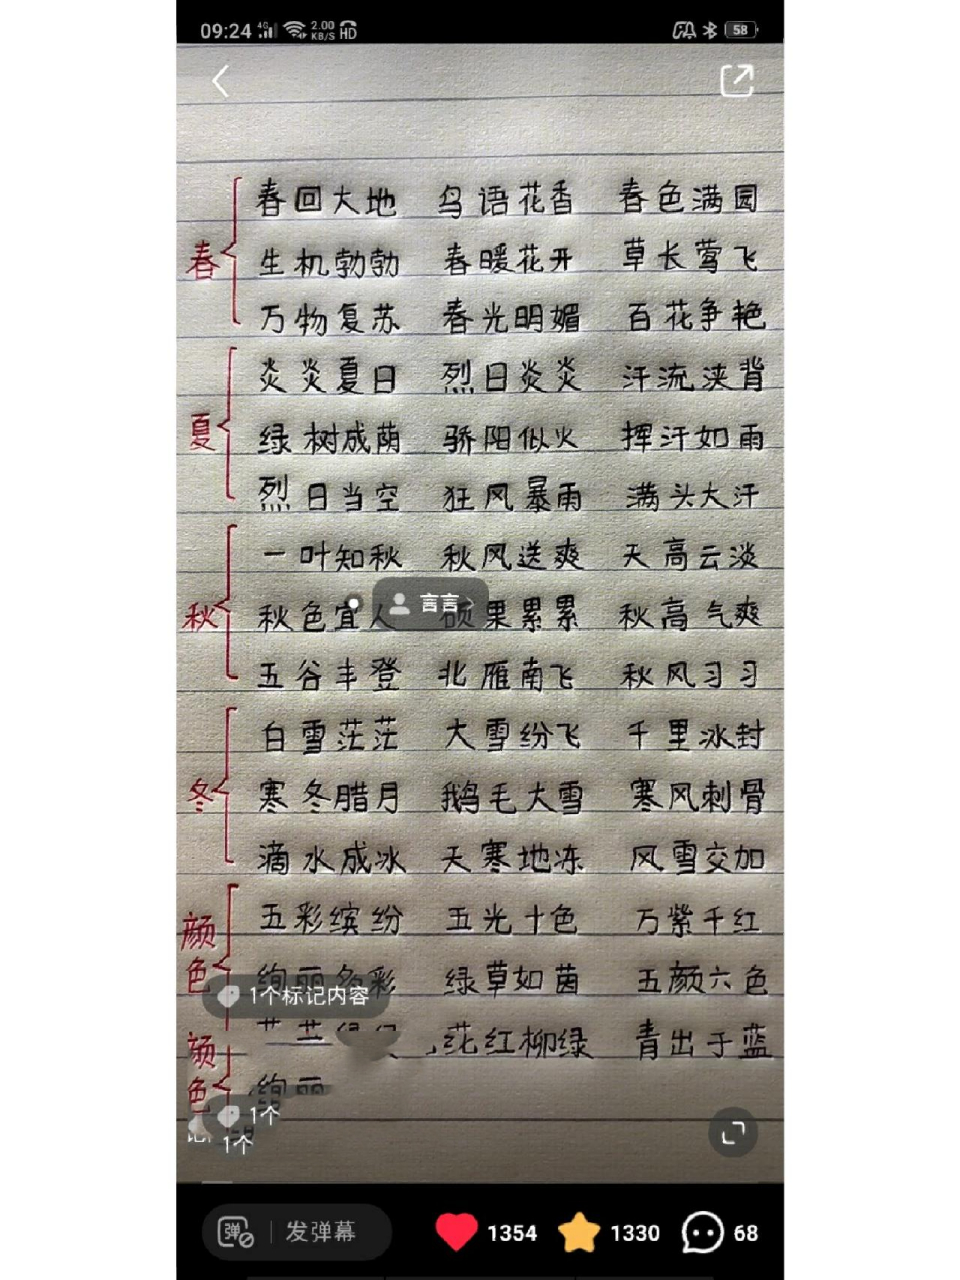 09:24 4G 2.00 KB/S HD 58
春回大地 鸟语花香 春色满园
春 生机勃勃 春暖花开 草长莺飞
万物复苏 春光明媚 百花争艳
炎炎夏日 烈日炎炎 汗流浃背
夏 绿树成荫 骄阳似火 挥汗如雨
烈日当空 狂风暴雨 满头大汗
一叶知秋 秋风送爽 天高云淡
言言
秋 秋色宜人 硕果累累 秋高气爽
五谷丰登 北雁南飞 秋风习习
白雪茫茫 大雪纷飞 千里冰封
冬 寒冬腊月 鹅毛大雪 寒风刺骨
滴水成冰 天寒地冻 风雪交加
颜色 五彩缤纷 五光十色 万紫千红
绚丽多彩 绿草如茵 五颜六色
1个标记内容
颜色 花红柳绿 青出于蓝
绚丽
1个
1个
弹 发弹幕 1354 1330 68